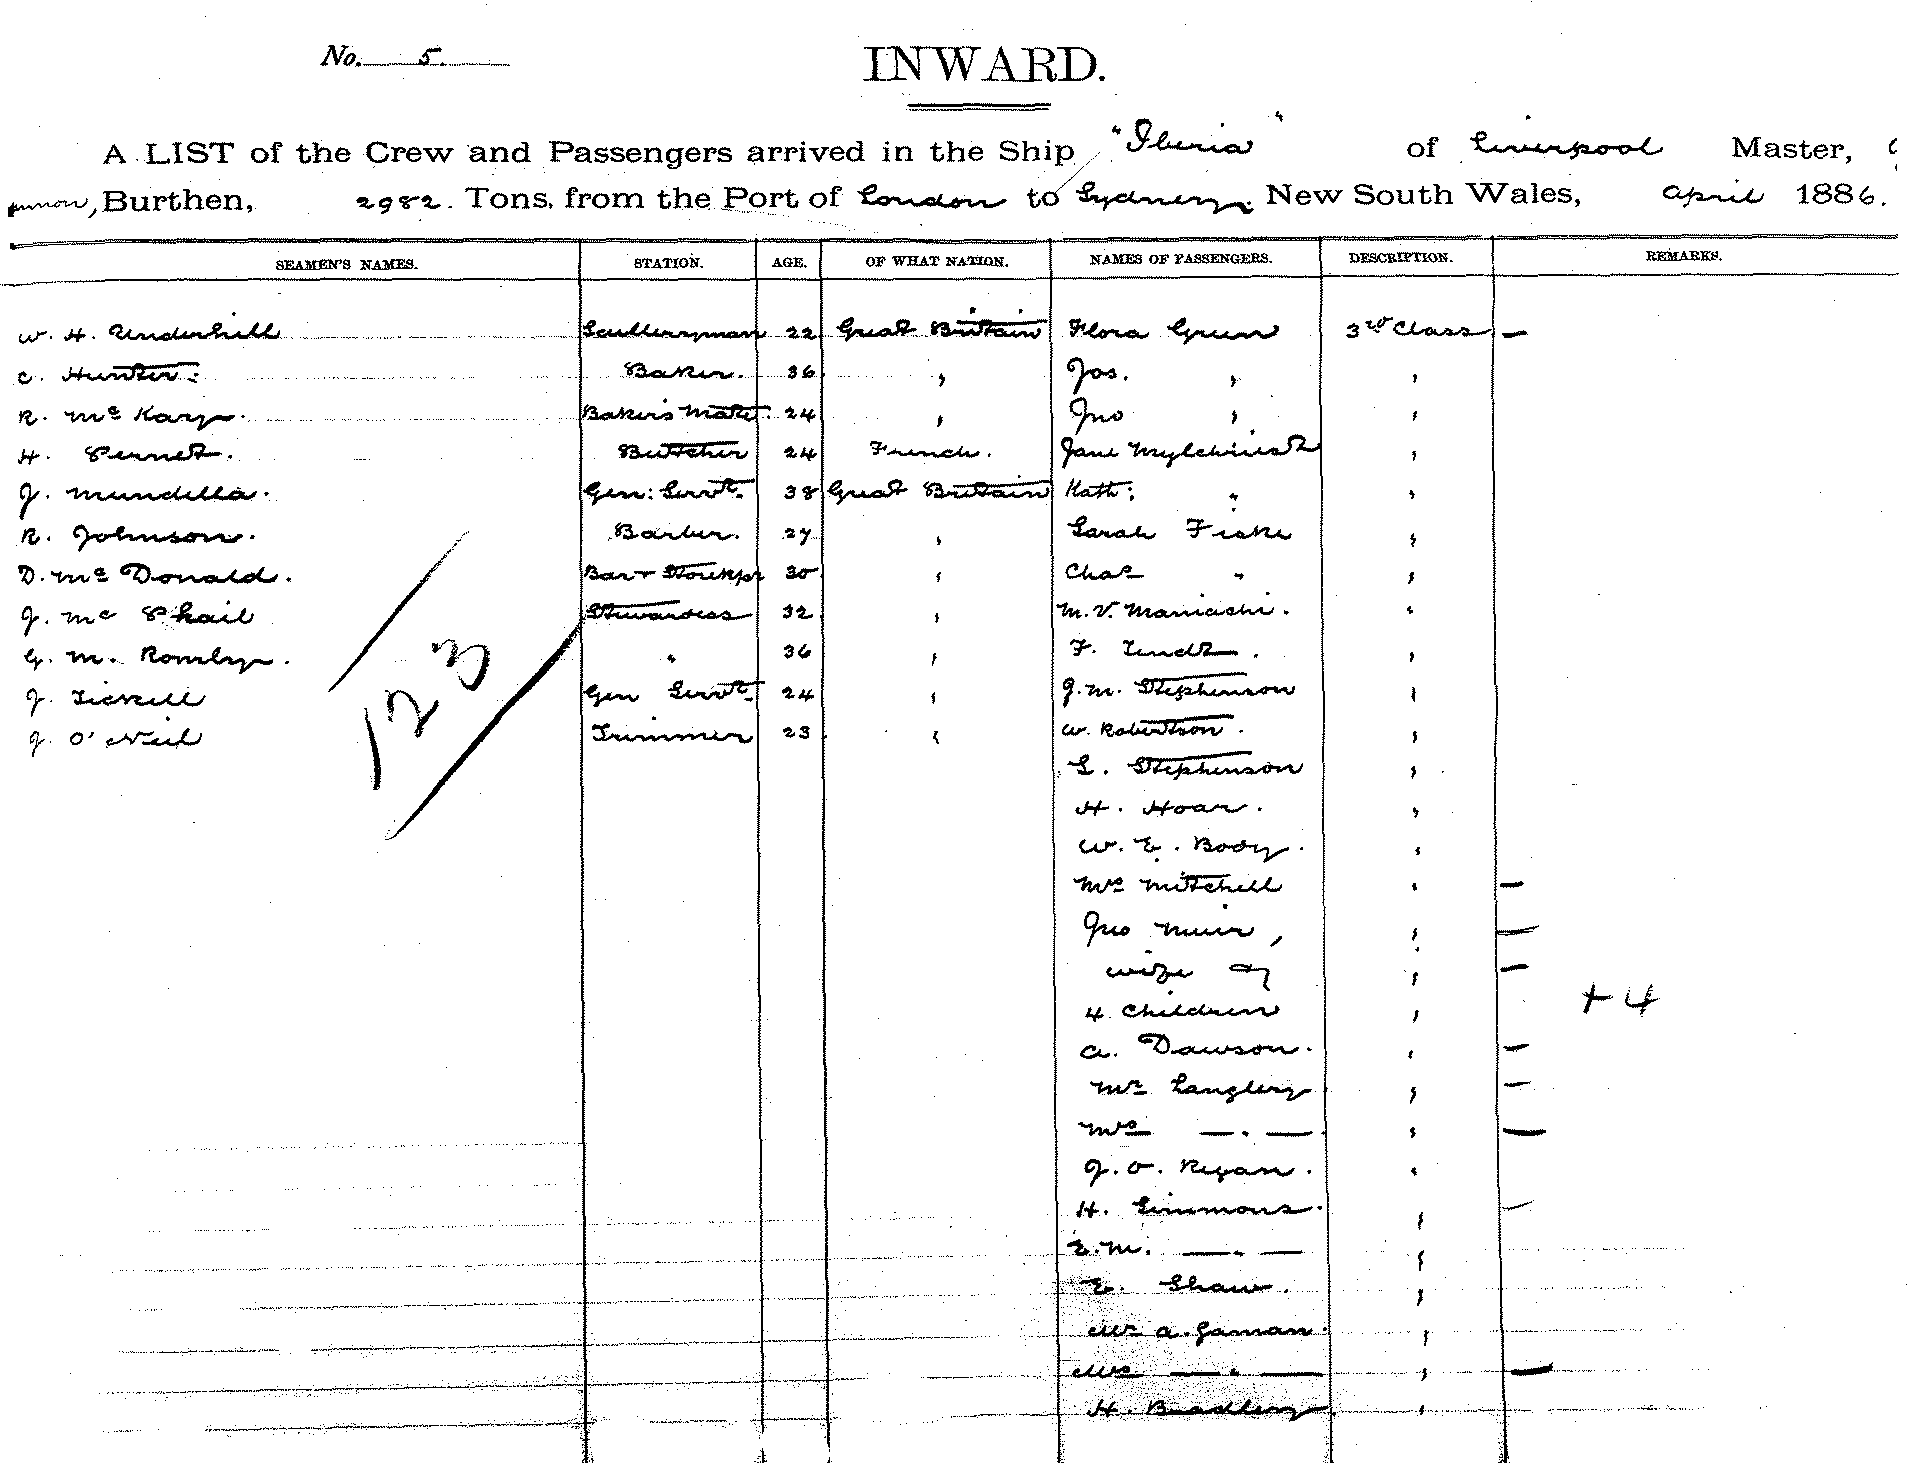 No. 5.
INWARD.
A LIST of the Crew and Passengers arrived in the Ship "Iberia" of Liverpool Master,
Burthen, 2982. Tons, from the Port of London to Sydney, New South Wales, April 1886.
SEAMEN'S NAMES. STATION. AGE. OF WHAT NATION. NAMES OF PASSENGERS. DESCRIPTION. REMARKS.
W. H. Underhill Sculleryman 22 Great Britain Flora Green 3rd Class —
C. Hunter. Baker. 36 " Jos. " "
R. Mc Kay. Baker's Mate. 24 " Jno " "
H. Pernet. Butcher 24 French. Jane "
J. Mundella. Gen: Servt. 38 Great Britain Kath: " "
R. Johnson. Barber. 27 " Sarah Fiske "
D. Mc Donald. Bar & Storekpr 30 " Chas " "
J. Mc Phail Stewardess 32 " M. V. "
G. M. Romley. " 36 " F. "
J. Tickell Gen Servt. 24 " J. M. Stephenson "
J. O'Neil Trimmer 23 " W. Robertson. "
S. Stephenson "
H. Hoar. "
W. E. Body. "
123
Mrs Mitchell " —
Jno Muir, " —
wife & " —
4 Children " + 4
A. Dawson. " —
Mr Langley " —
Mrs —"— " —
J. O. Regan. "
H. Simmons. " —
E. M. —"— "
E. Shaw. "
Mr A. Jaman. "
Mrs —"— " —
H. Bradley "